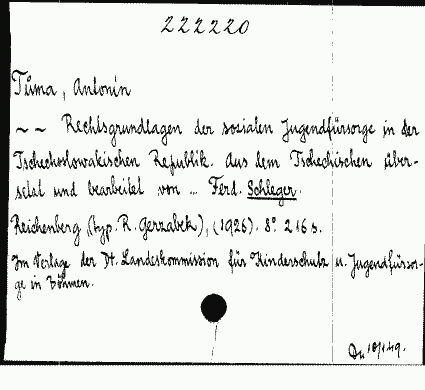 222220
Tůma, Antonín
~ ~ Rechtsgrundlagen der sozialen Jugendfürsorge in der
Tschechoslowakischen Republik. Aus dem Tschechischen über-
setzt und bearbeitet von ... Ferd. Schleger.
Reichenberg (typ. R. Gerzabek), (1926). 8° 216 s.
Im Verlage der Dt. Landeskommission für Kinderschutz u. Jugendfürsor-
ge in Böhmen.